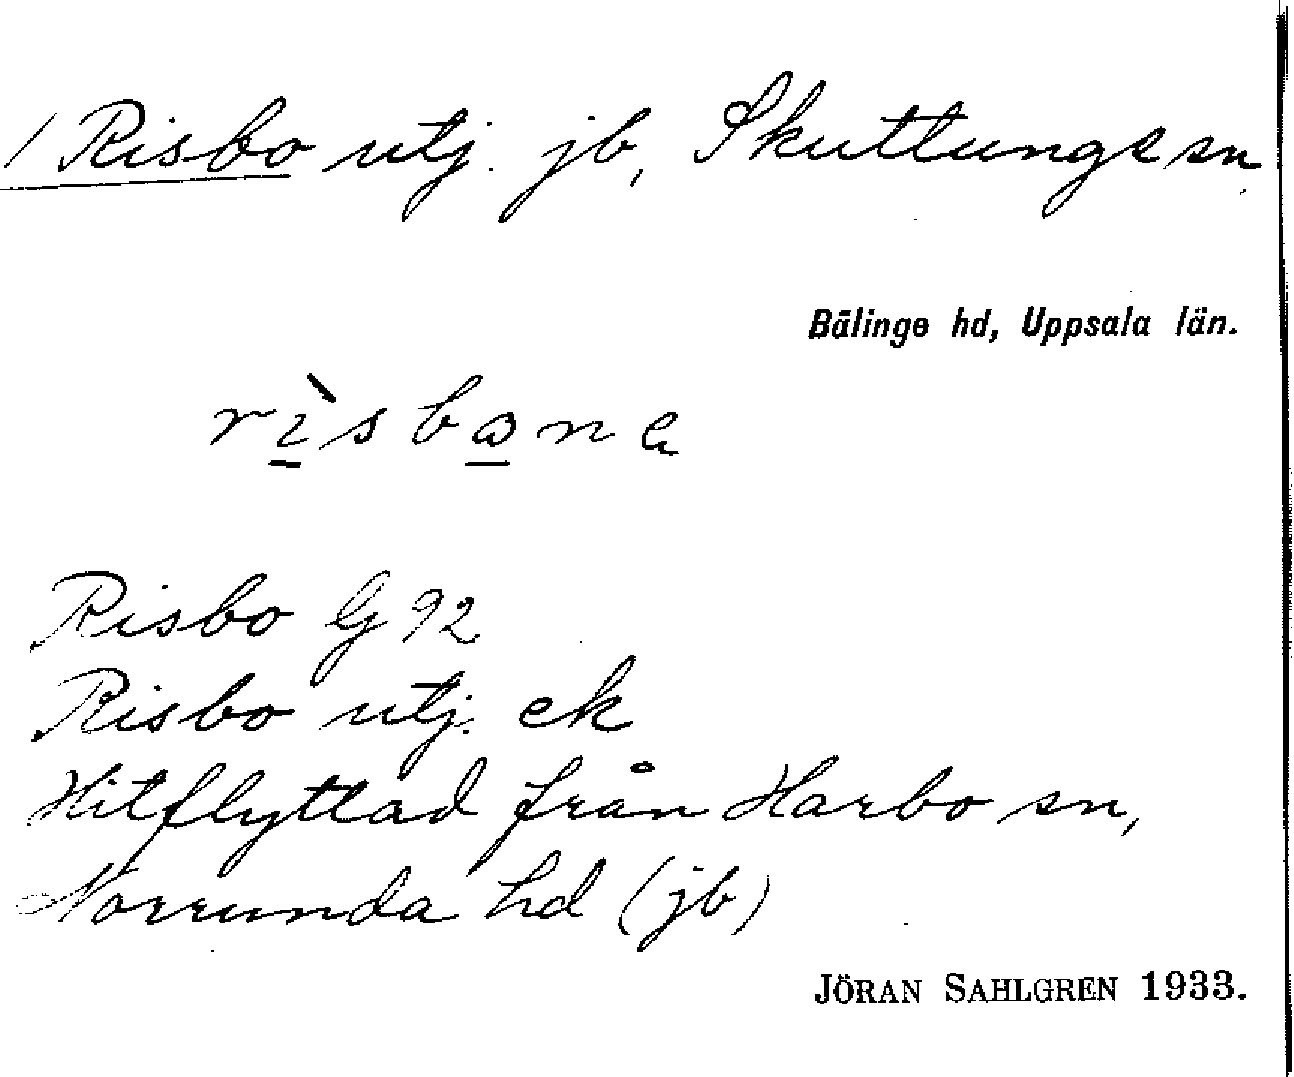 1 Risbo utj. jb, Skuttunge sn
Bälinge hd, Uppsala län.
Risbo G 92
Risbo utj. ek
Hitflyttad från Harbo sn,
Norrunda hd (jb)
JÖRAN SAHLGREN 1933.